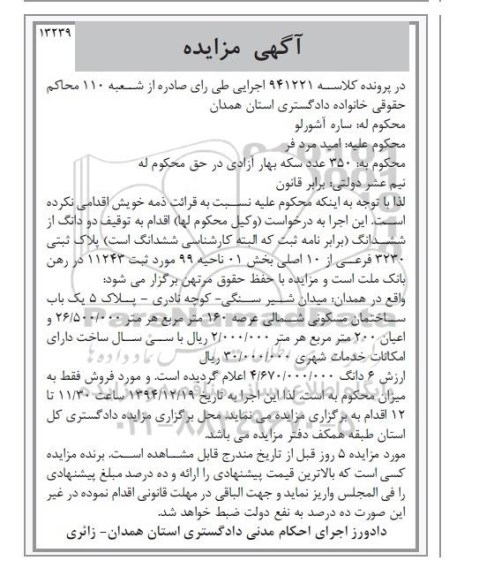 ۱۳۲۳۹
آگهی مزایده
در پرونده کلاسه ۹۴۱۲۲۱ اجرایی طی رای صادره از شعبه ۱۱۰ محاکم
حقوقی خانواده دادگستری استان همدان
محکوم له: ساره آشورلو
محکوم علیه: امید مرد فر
محکوم به: ۳۵۰ عدد سکه بهار آزادی در حق محکوم له
نیم عشر دولتی: برابر قانون
لذا با توجه به اینکه محکوم علیه نسبت به قرائت ذمه خویش اقدامی نکرده
است. این اجرا به درخواست (وکیل محکوم لها) اقدام به توقیف دو دانگ از
ششدانگ (برابر نامه ثبت که البته کارشناسی ششدانگ است) پلاک ثبتی
۳۲۳۰ فرعی از ۱۰ اصلی بخش ۰۱ ناحیه ۹۹ مورد ثبت ۱۱۲۴۳ در رهن
بانک ملت است و مزایده با حفظ حقوق مرتهن برگزار می شود؛
واقع در همدان: میدان شیر سنگی- کوچه نادری - پلاک ۵ یک باب
ساختمان مسکونی شمالی عرصه ۱۶۰ متر مربع هر متر ۲۶/۵۰۰/۰۰۰ و
اعیان ۲۰۰ متر مربع هر متر ۲/۰۰۰/۰۰۰ ریال با سی سال ساخت دارای
امکانات خدمات شهری ۳۰/۰۰۰/۰۰۰ ریال
ارزش ۶ دانگ ۴/۶۷۰/۰۰۰/۰۰۰ اعلام گردیده است. و مورد فروش فقط به
میزان محکوم به است. لذا این اجرا به تاریخ ۱۳۹۴/۱۲/۱۹ ساعت ۱۱/۳۰ تا
۱۲ اقدام به برگزاری مزایده می نماید. محل برگزاری مزایده دادگستری کل
استان طبقه همکف دفتر مزایده می باشد.
مورد مزایده ۵ روز قبل از تاریخ مندرج قابل مشاهده است. برنده مزایده
کسی است که بالاترین قیمت پیشنهادی را ارائه و ده درصد مبلغ پیشنهادی
را فی المجلس واریز نماید و جهت الباقی در مهلت قانونی اقدام نموده در غیر
این صورت ده درصد به نفع دولت ضبط خواهد شد.
دادورز اجرای احکام مدنی دادگستری استان همدان- زائری